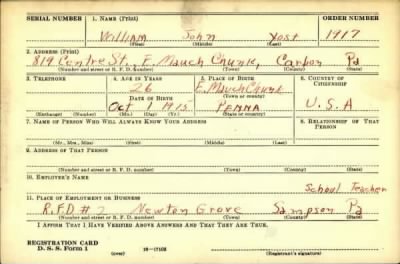 SERIAL NUMBER 1. NAME (Print) ORDER NUMBER
William John Yost 1917
(First) (Middle) (Last)
2. ADDRESS (Print)
819 Centre St., E. Mauch Chunk, Carbon Pa
(Number and street or R. F. D. number) (Town) (County) (State)
3. TELEPHONE 4. AGE IN YEARS 5. PLACE OF BIRTH 6. COUNTRY OF CITIZENSHIP
26 E. Mauch Chunk
DATE OF BIRTH (Town or county)
Oct 1 1915 PENNA U.S.A
(Exchange) (Number) (Mo.) (Day) (Yr.) (State or country)
7. NAME OF PERSON WHO WILL ALWAYS KNOW YOUR ADDRESS 8. RELATIONSHIP OF THAT PERSON
(Mr., Mrs., Miss) (First) (Middle) (Last)
9. ADDRESS OF THAT PERSON
(Number and street or R. F. D. number) (Town) (County) (State)
10. EMPLOYER'S NAME
School Teacher
11. PLACE OF EMPLOYMENT OR BUSINESS
R.F.D # 2 Newton Grove Sampson Pa
(Number and street or R. F. D. number) (Town) (County) (State)
I AFFIRM THAT I HAVE VERIFIED ABOVE ANSWERS AND THAT THEY ARE TRUE.
REGISTRATION CARD
D. S. S. Form 1 (over) (Registrant's signature)